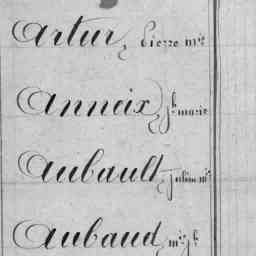 Artur, Pierre mie
Anneix, jh marie
Aubault, Julien mie
Aubaud, mie jh